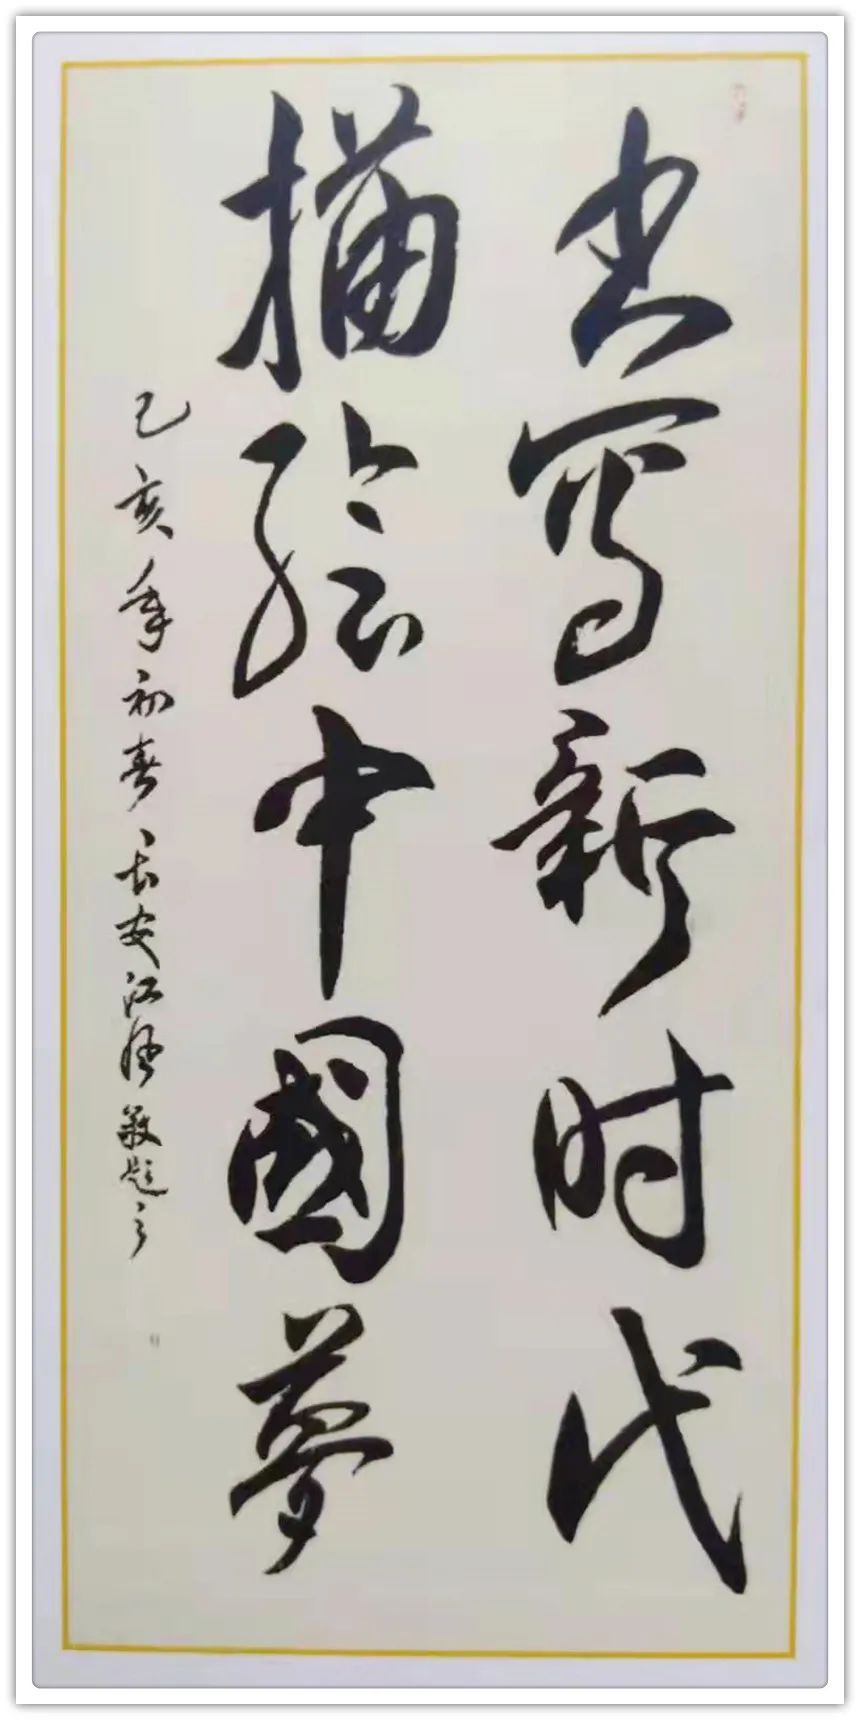 书写新时代
描绘中國夢
己亥年初春长安江海敬题之